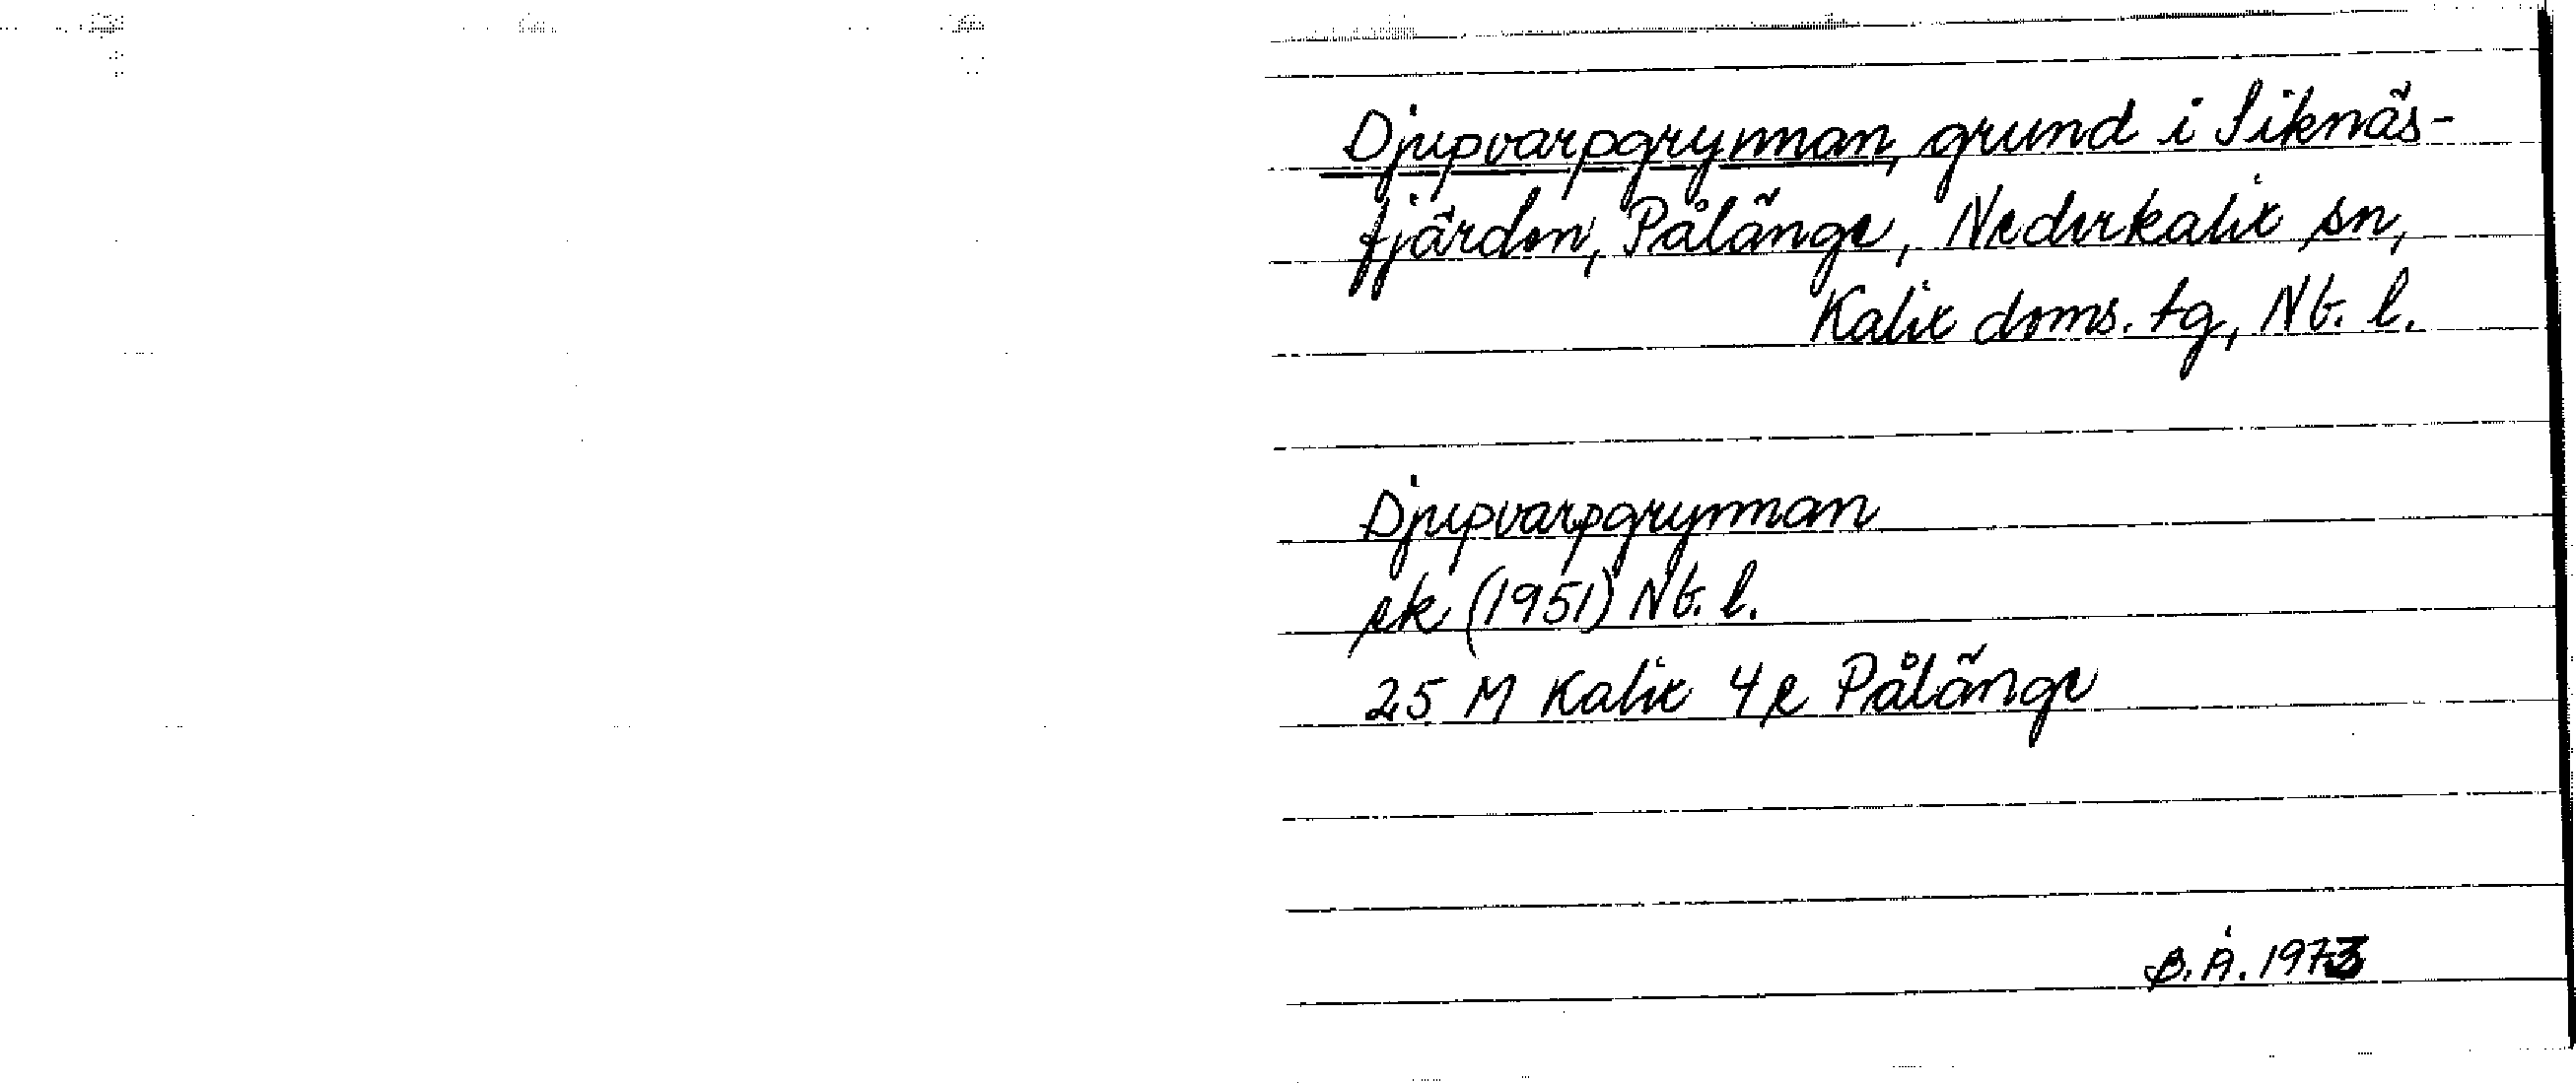 Djupvarpgrynnan, grund i Siknäs-
fjärden, Pålänge, Nederkalix sn,
Kalix doms. tg, Nb. l.
Djupvarpgrynnan
ek (1951) Nb. l.
25 M Kalix 4 e Pålänge
B. Å. 1973